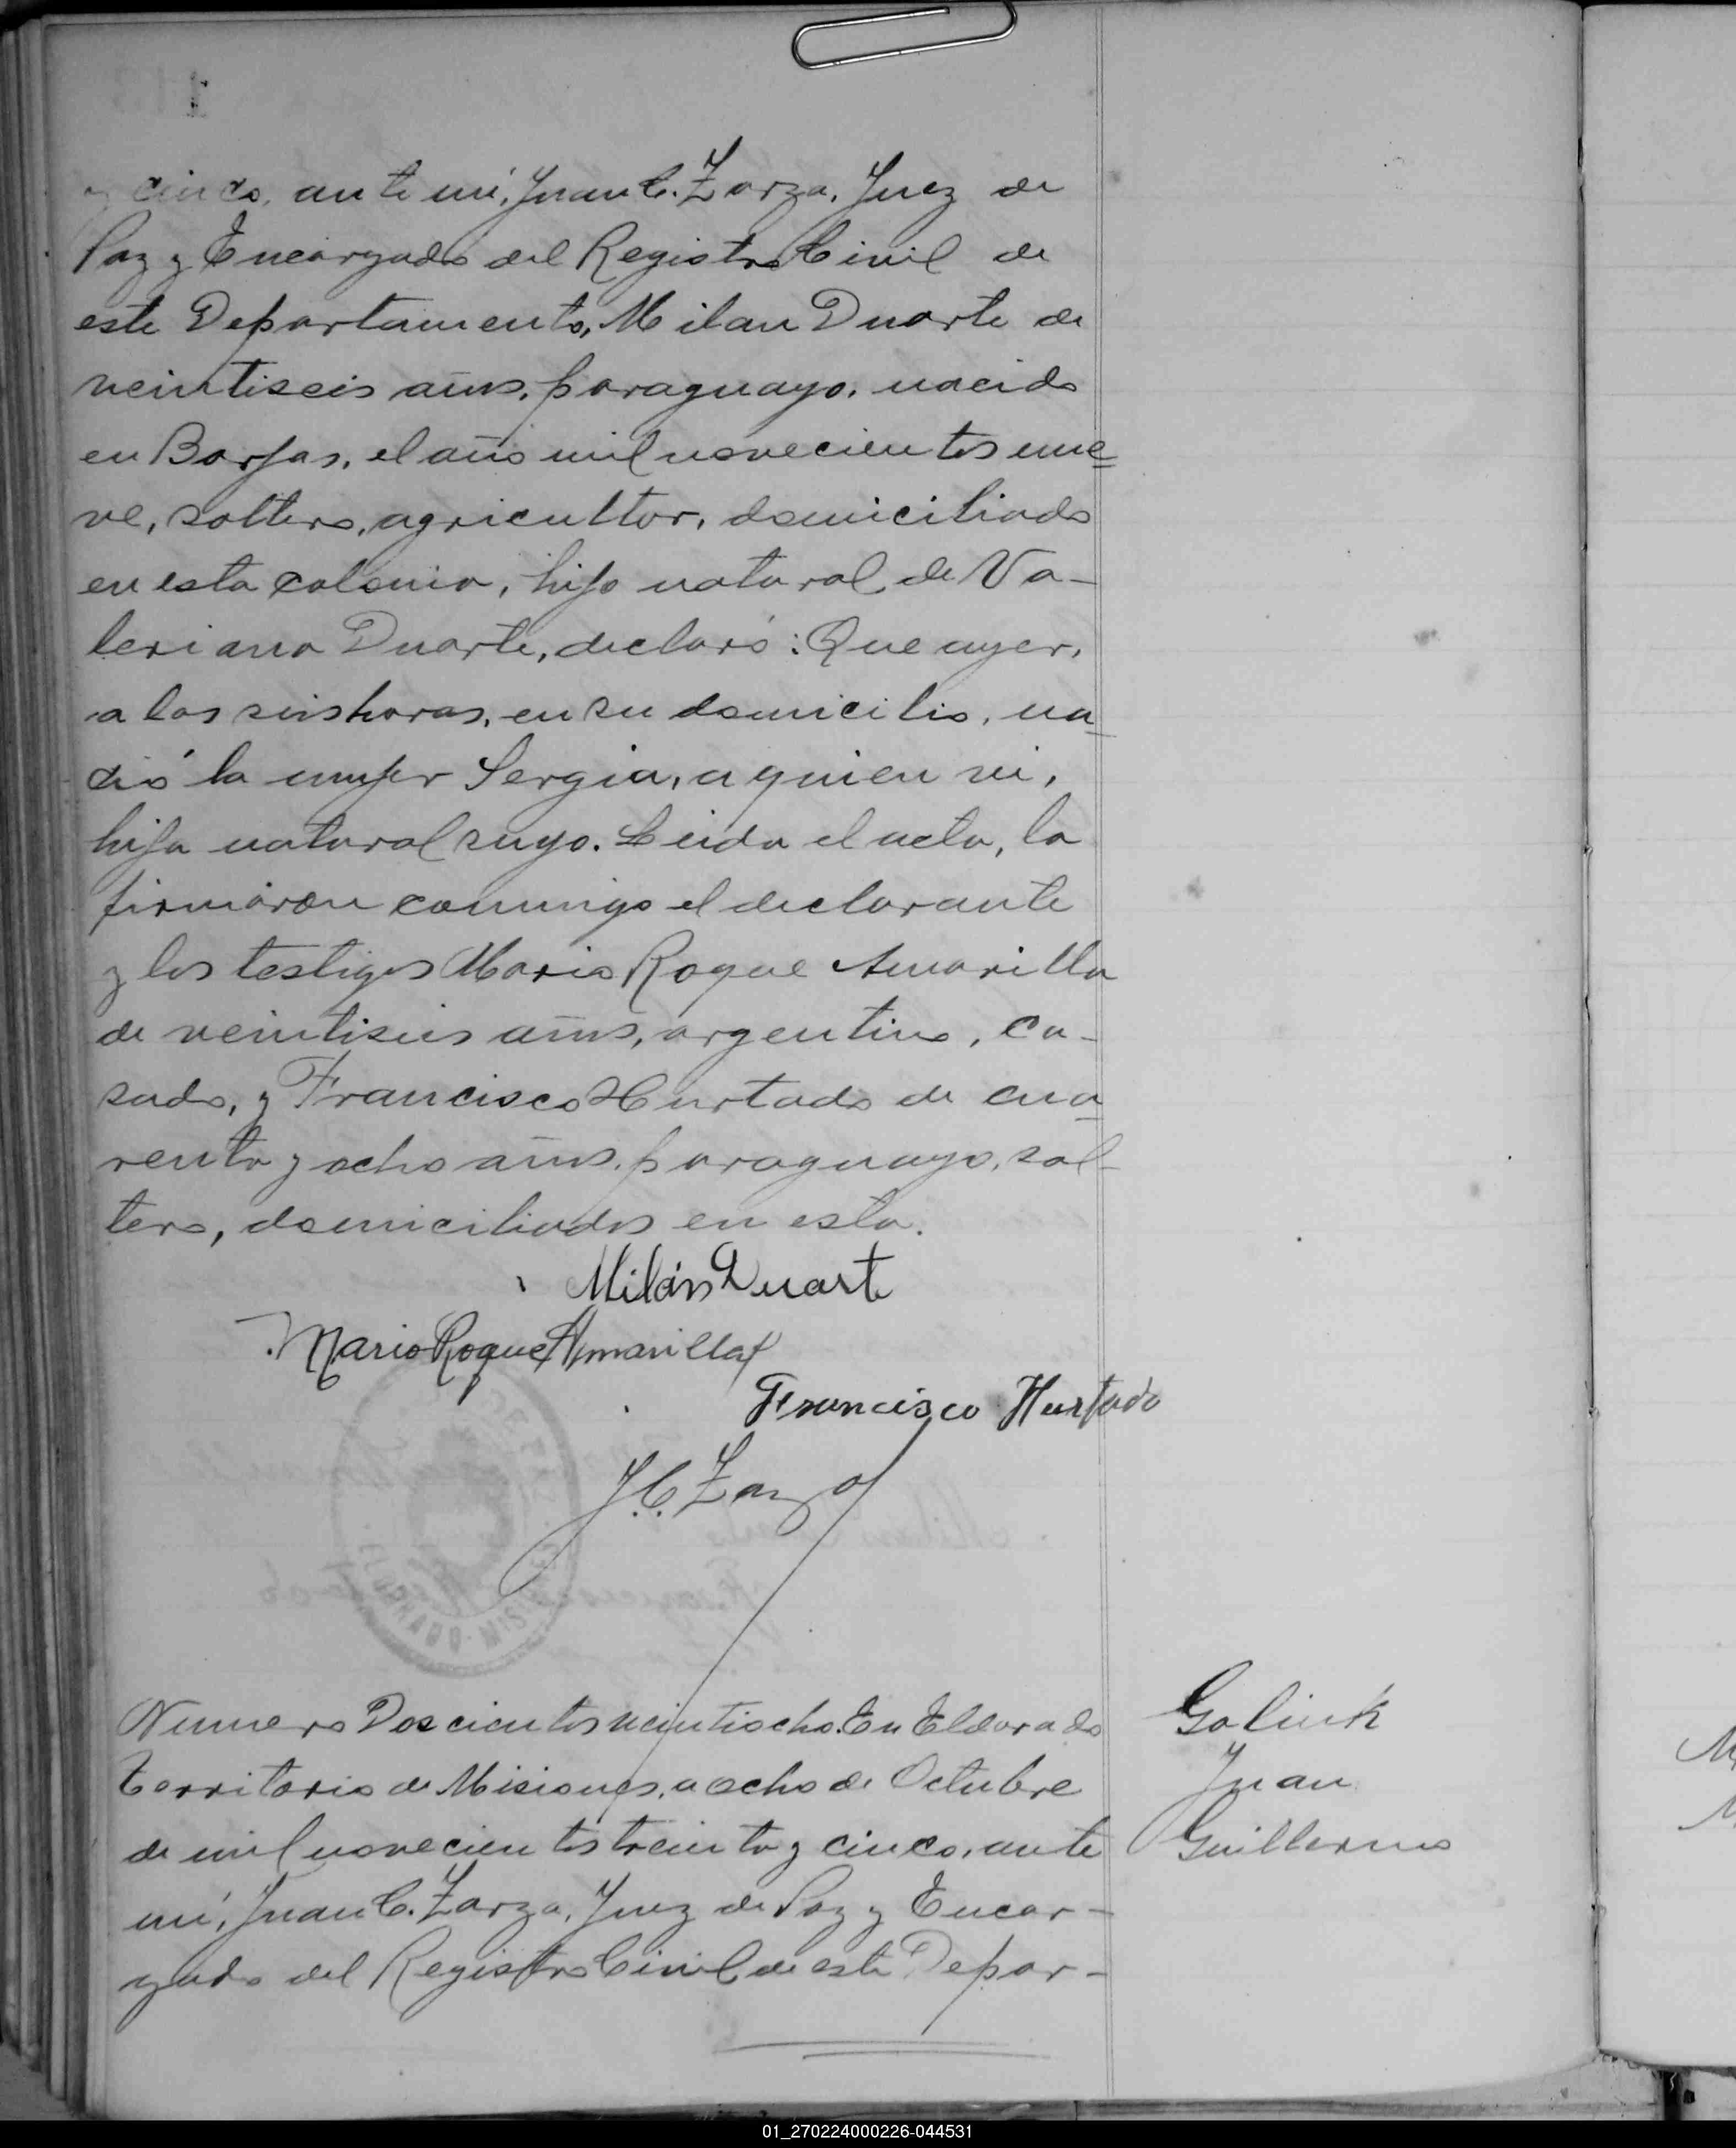 y cinco, ante mí, Juan C. Zarza, Juez de
Paz y Encargado del Registro Civil de
este Departamento, Milan Duarte de
veintiseis años, paraguayo, nacido
en Borjas, el año mil novecientos nue-
ve, soltero, agricultor, domiciliado
en esta colonia, hijo natural de Va-
leriana Duarte, declaró: Que ayer,
a las seis horas, en su domicilio, na-
ció la mujer Sergia, a quien vi,
hija natural suya. Leida el acta, la
firmaron conmigo el declarante
y los testigos Mario Roque Amarilla
de veintiseis años, argentino, ca-
sado, y Francisco Hurtado de cua-
renta y ocho años, paraguayo, sol-
tero, domiciliados en esta.
Milán Duarte
Mario Roque Amarilla
Francisco Hurtado
J.C. Zarza
ELDORADO MISIONES
Numero Doscientos veintiocho. En Eldorado
Territorio de Misiones, a ocho de Octubre
de mil novecientos treinta y cinco, ante
mí, Juan C. Zarza, Juez de Paz y Encar-
gado del Registro Civil de este Depar-
Golink
Juan
Guillermo
01_270224000226-044531